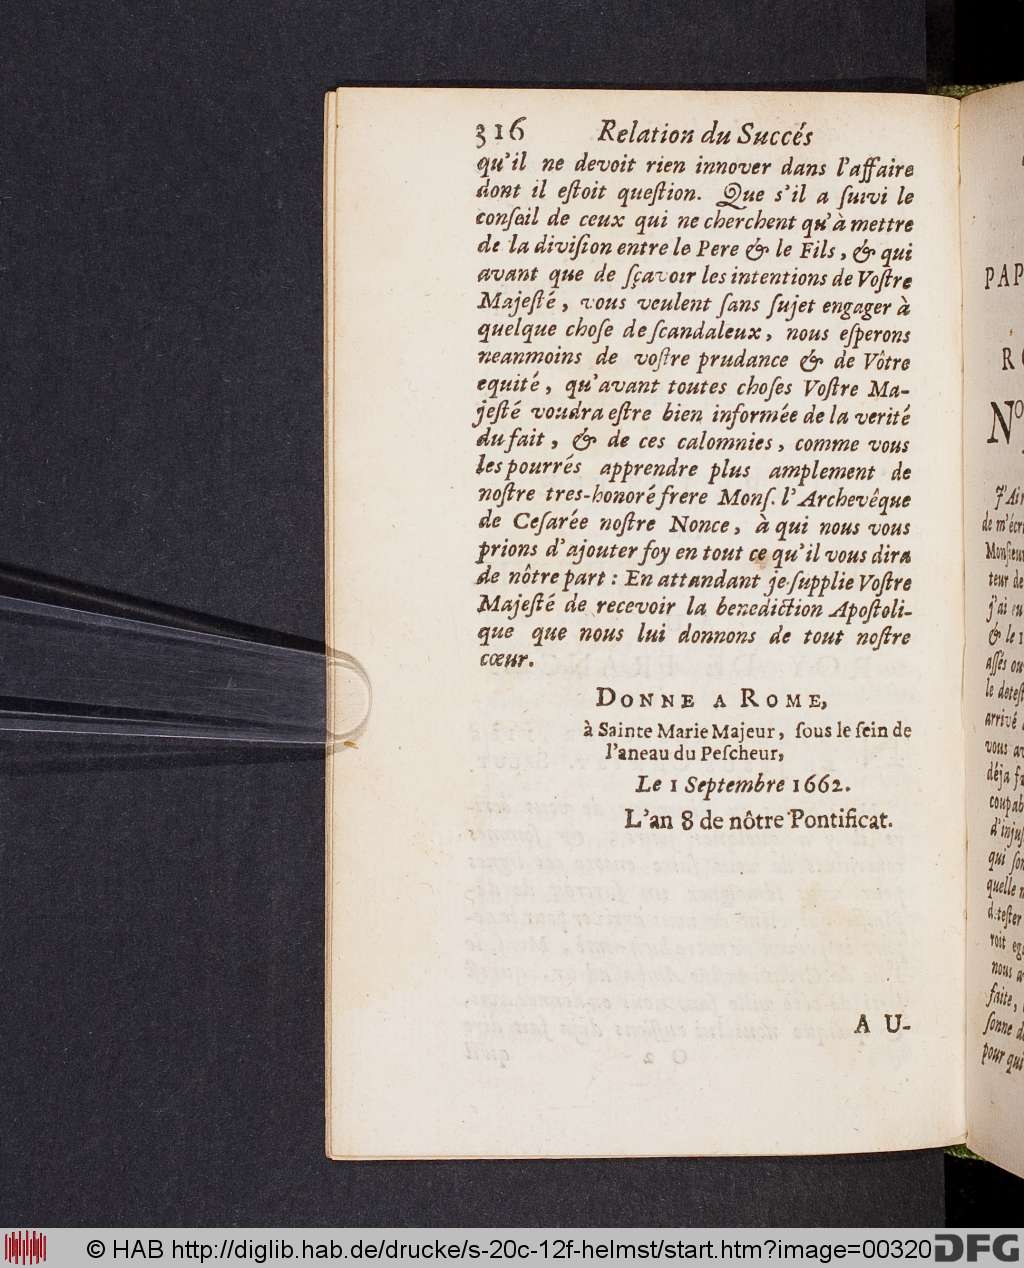 316 Relation du Succés
qu'il ne devoit rien innover dans l'affaire
dont il eſtoit queſtion. Que s'il a ſuivi le
conſeil de ceux qui ne cherchent qu'à mettre
de la diviſion entre le Pere & le Fils, & qui
avant que de ſçavoir les intentions de Voſtre
Majeſté, vous veulent ſans ſujet engager à
quelque choſe de ſcandaleux, nous eſperons
neanmoins de voſtre prudance & de Vôtre
equité, qu'avant toutes choſes Voſtre Ma-
jeſté voudra eſtre bien informée de la verité
du fait, & de ces calomnies, comme vous
les pourrés apprendre plus amplement de
noſtre tres-honoré frere Monſ. l'Archevêque
de Ceſarée noſtre Nonce, à qui nous vous
prions d'ajouter foy en tout ce qu'il vous dira
de nôtre part: En attandant je ſupplie Voſtre
Majeſté de recevoir la benediction Apoſtoli-
que que nous lui donnons de tout noſtre
cœur.
DONNE A ROME,
à Sainte Marie Majeur, ſous le ſein de
l'aneau du Peſcheur,
Le 1 Septembre 1662.
L'an 8 de nôtre Pontificat.
A U-
PAP
RO
No
J'Ai
de m'écri
Monſieur
teur de
j'ai eu
& le
aſſés ou
le deteſt
arrivé
vous av
déja fa
coupab
d'injuſ
qui ſon
quelle n
deteſter
roit eg
nous a
faite,
ſonne de
pour qui
© HAB http://diglib.hab.de/drucke/s-20c-12f-helmst/start.htm?image=00320
DFG